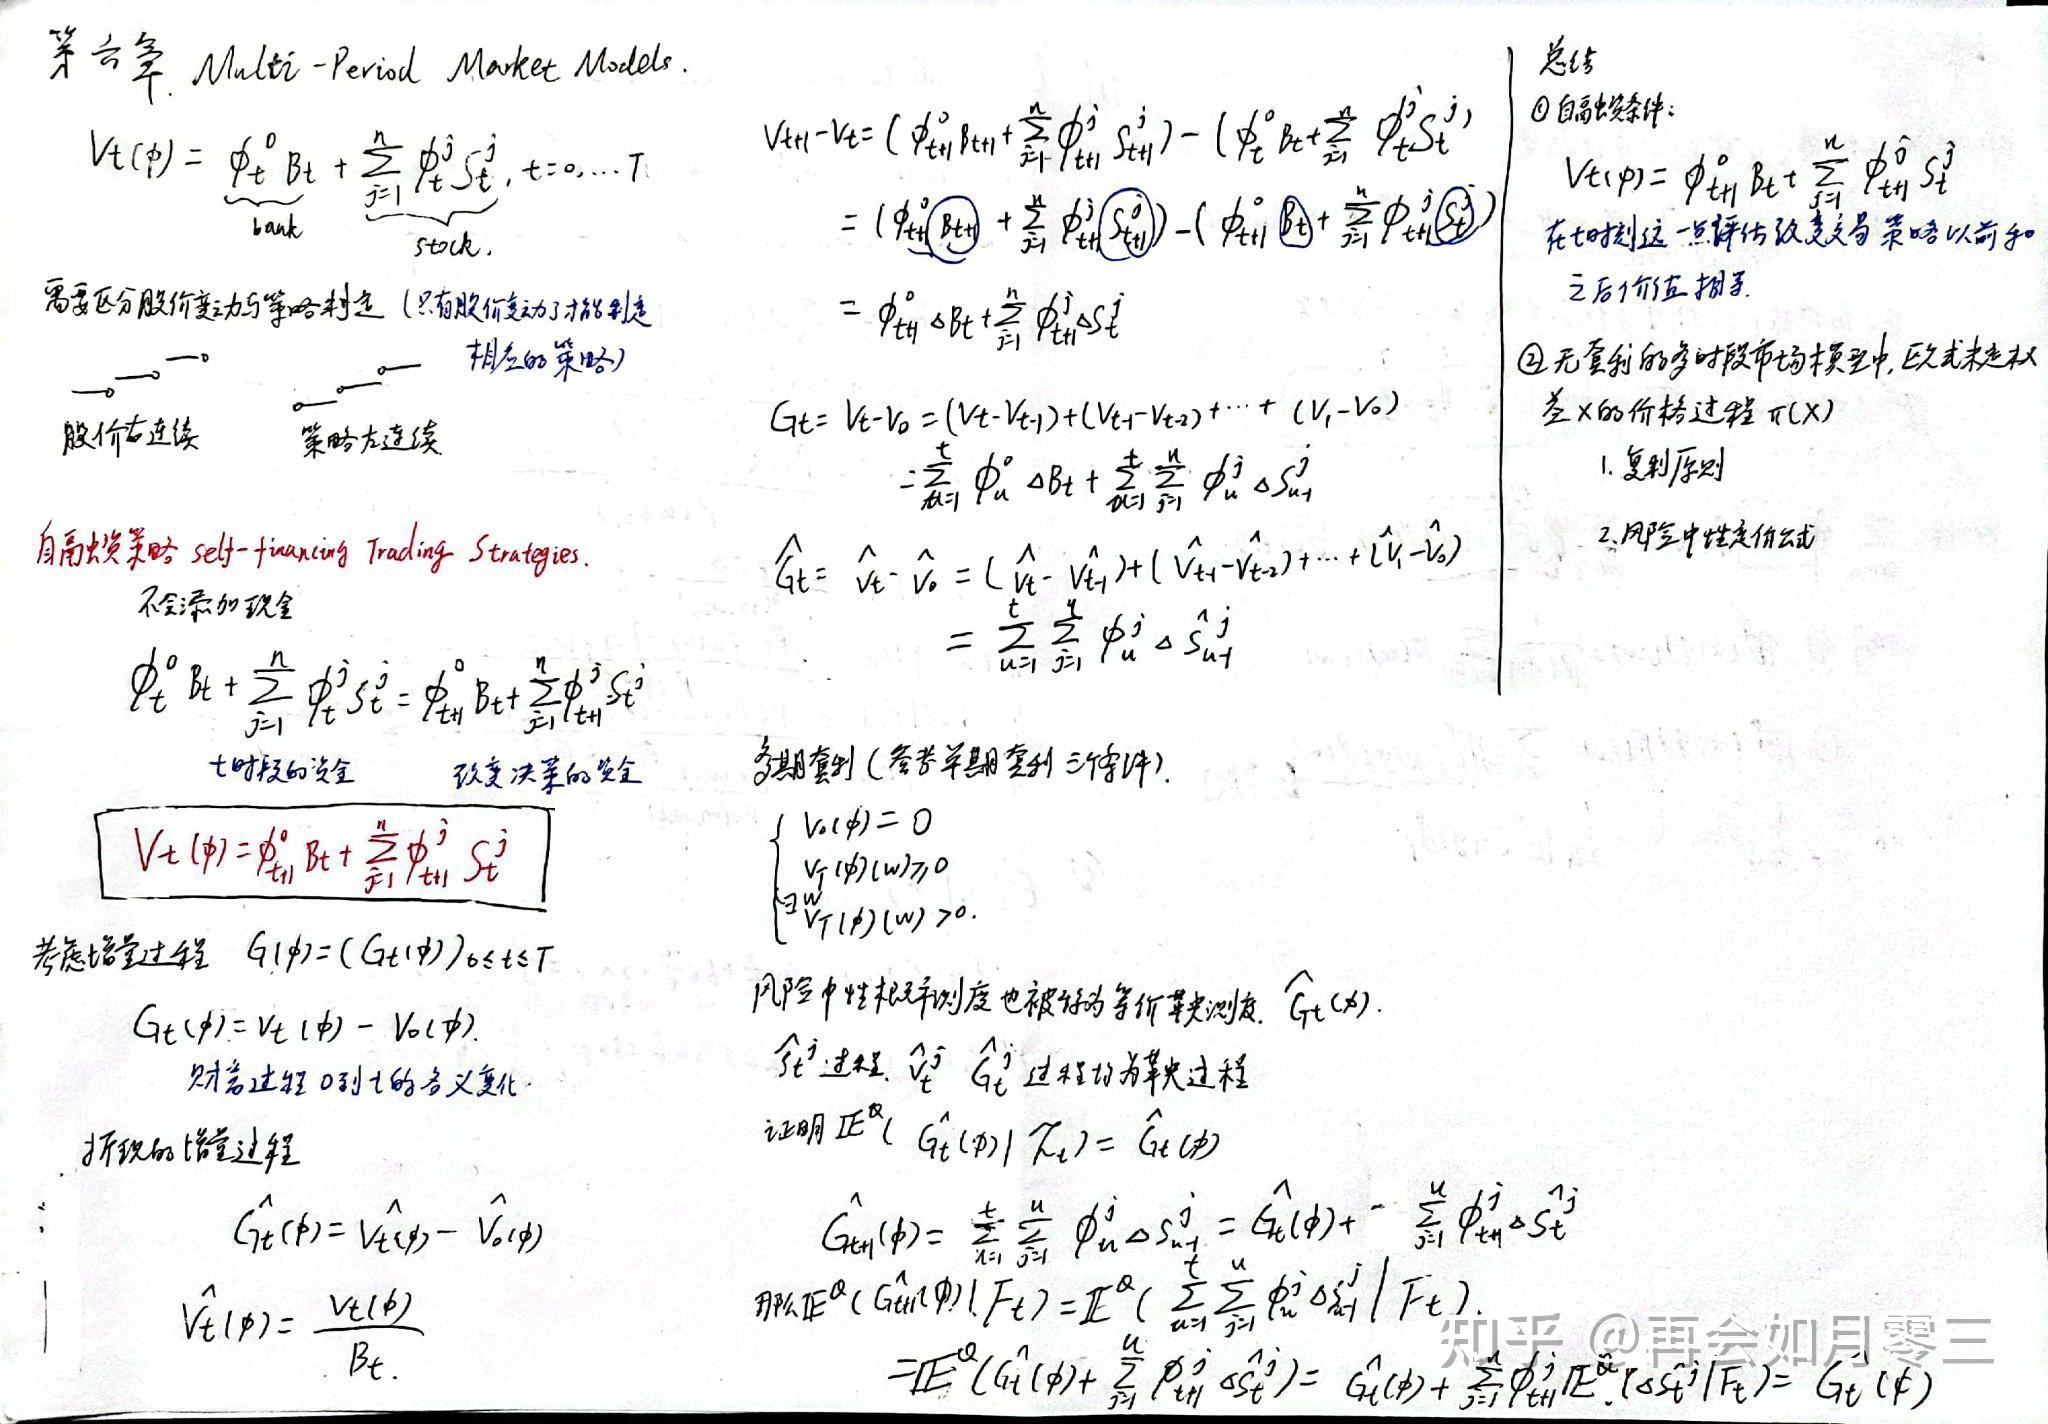 第六章. Multi-Period Market Models.
Vt(φ) = φ_t^0 B_t + Σ_{j=1}^n φ_t^j S_t^j, t=0,...T
bank
stock.
需要区分股价变动与策略制定 (只有股价变动了才能制定
相应的策略)
股价右连续
策略左连续
自融资策略 self-financing Trading Strategies.
不会添加现金
φ_t^0 B_t + Σ_{j=1}^n φ_t^j S_t^j = φ_{t+1}^0 B_t + Σ_{j=1}^n φ_{t+1}^j S_t^j
t时段的资金
改变决策的资金
V_t(φ) = φ_{t+1}^0 B_t + Σ_{j=1}^n φ_{t+1}^j S_t^j
考虑增量过程 G(φ) = (G_t(φ))_{0≤t≤T}
G_t(φ) = V_t(φ) - V_0(φ).
财富过程0到t的名义变化.
折现的增量过程
Ĝ_t(φ) = V̂_t(φ) - V̂_0(φ)
V̂_t(φ) = V_t(φ) / B_t.
V_{t+1} - V_t = (φ_{t+1}^0 B_{t+1} + Σ_{j=1}^n φ_{t+1}^j S_{t+1}^j) - (φ_t^0 B_t + Σ_{j=1}^n φ_t^j S_t^j)
= (φ_{t+1}^0 B_{t+1} + Σ_{j=1}^n φ_{t+1}^j S_{t+1}^j) - (φ_{t+1}^0 B_t + Σ_{j=1}^n φ_{t+1}^j S_t^j)
= φ_{t+1}^0 ΔB_t + Σ_{j=1}^n φ_{t+1}^j ΔS_t^j
G_t = V_t - V_0 = (V_t - V_{t-1}) + (V_{t-1} - V_{t-2}) + ... + (V_1 - V_0)
= Σ_{u=1}^t φ_u^0 ΔB_t + Σ_{u=1}^t Σ_{j=1}^n φ_u^j ΔS_{u-1}^j
Ĝ_t = V̂_t - V̂_0 = (V̂_t - V̂_{t-1}) + (V̂_{t-1} - V̂_{t-2}) + ... + (V̂_1 - V̂_0)
= Σ_{u=1}^t Σ_{j=1}^n φ_u^j ΔŜ_{u-1}^j
多期套利 (参考单期套利三个条件).
V_0(φ) = 0
V_T(φ)(w) ≥ 0
∃w
V_T(φ)(w) > 0.
风险中性概率测度也被称为等价鞅测度. Ĝ_t(φ).
Ŝ_t^j 过程. V̂_t^j Ĝ_t^j 过程均为鞅过程
证明 E^Q(Ĝ_t(φ) | F_t) = Ĝ_t(φ)
Ĝ_{t+1}(φ) = Σ_{u=1}^t Σ_{j=1}^n φ_u^j ΔS_{u-1}^j = Ĝ_t(φ) + Σ_{j=1}^n φ_{t+1}^j ΔŜ_t^j
那么 E^Q(Ĝ_{t+1}(φ) | F_t) = E^Q(Σ_{u=1}^t Σ_{j=1}^n φ_u^j ΔŜ_{u-1}^j | F_t).
= E^Q(Ĝ_t(φ) + Σ_{j=1}^n φ_{t+1}^j ΔŜ_t^j) = Ĝ_t(φ) + Σ_{j=1}^n φ_{t+1}^j E^Q(ΔŜ_t^j | F_t) = Ĝ_t(φ)
总结
① 自融资条件:
V_t(φ) = φ_{t+1}^0 B_t + Σ_{j=1}^n φ_{t+1}^j S_t^j
在t时刻这一点评估改变交易策略以前和
之后价值相等.
② 无套利的多时段市场模型中, 欧式未定权
益X的价格过程 π(X)
1. 复制原则
2. 风险中性定价公式
知乎 @再会如月零三